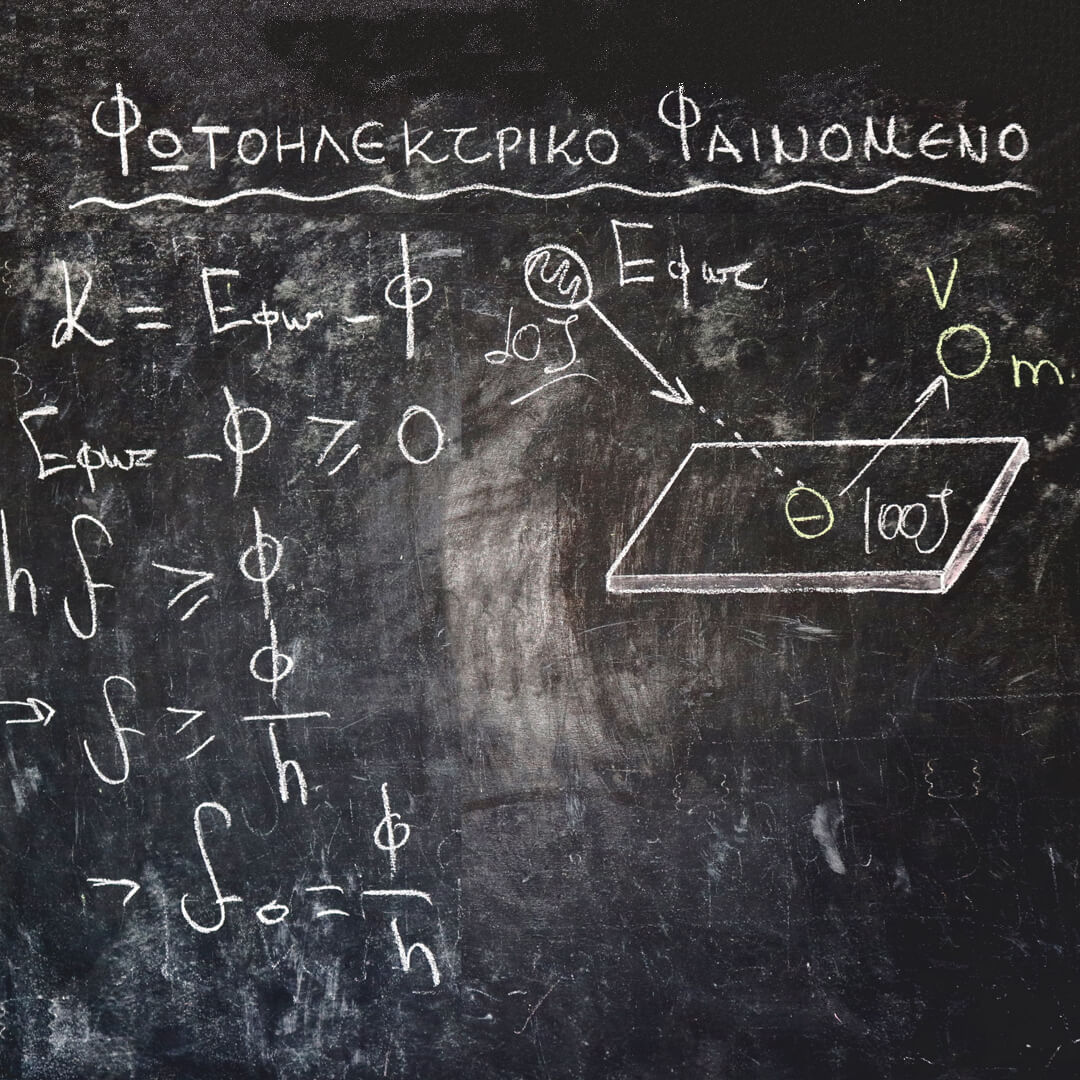 ΦΩΤΟΗΛΕΚΤΡΙΚΟ ΦΑΙΝΟΜΕΝΟ
K = Eφω - Φ
Eφως - Φ ≥ 0
h f ≥ Φ
⇒ f ≥ Φ/h
→ f₀ = Φ/h
Eφως
20J
V
m.
100J